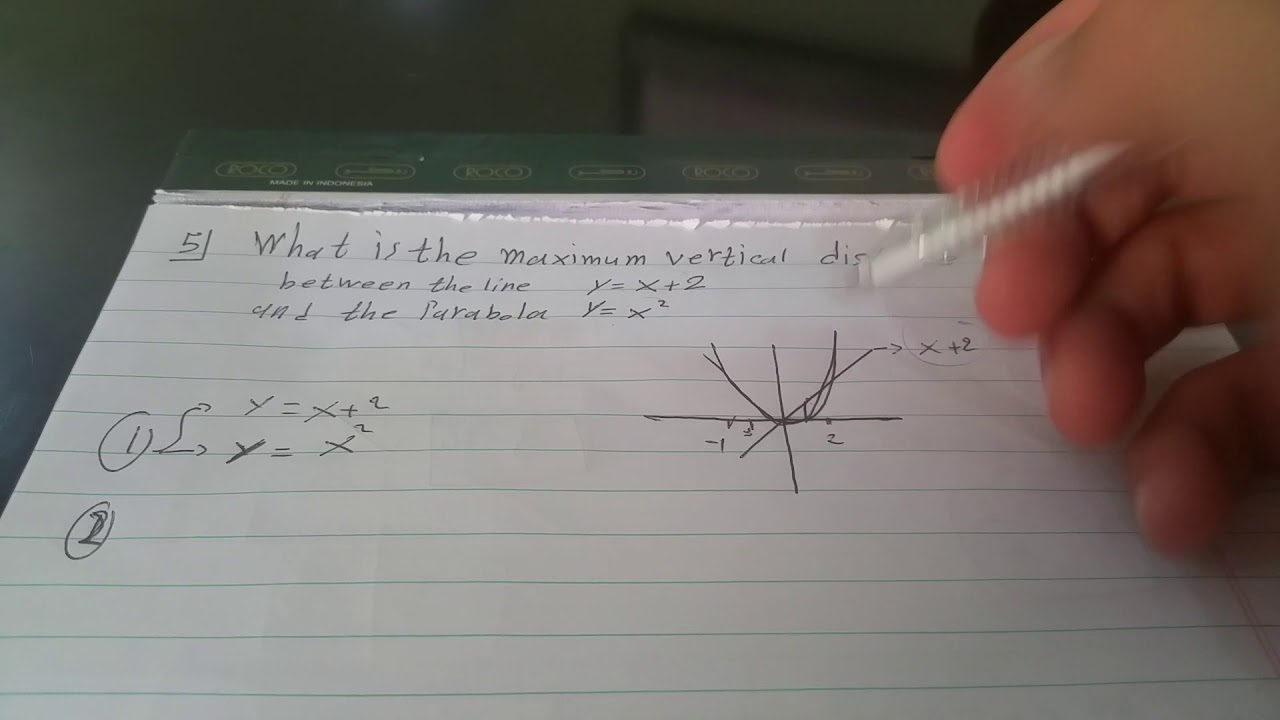 ROCO روكو ROCO روكو ROCO روكو
MADE IN INDONESIA
5] What is the maximum vertical dis
between the line y = x+2
and the Parabola y = x²
→ x+2
1 → y = x+2
→ y = x²
-1 2
2